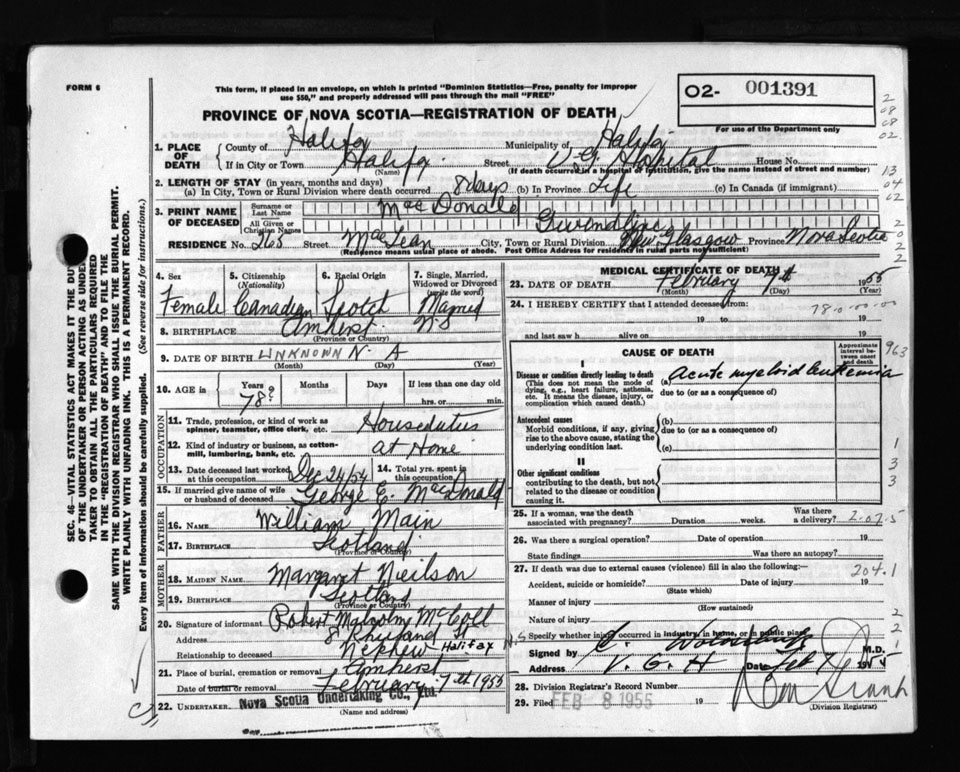 FORM 6
This form, if placed in an envelope, on which is printed "Dominion Statistics—Free, penalty for improper
use $50," and properly addressed will pass through the mail "FREE"
PROVINCE OF NOVA SCOTIA—REGISTRATION OF DEATH
O2- 001391
For use of the Department only
2
08
08
02
13
04
02
2
0
2
2
1. PLACE OF DEATH County of Halifax Municipality of Halifax
If in City or Town Halifax Street V.G. Hospital House No.
(Name) (If death occurred in a hospital or institution, give the name instead of street and number)
2. LENGTH OF STAY (in years, months and days)
(a) In City, Town or Rural Division where death occurred 8 days (b) In Province Life (c) In Canada (if immigrant)
3. PRINT NAME OF DECEASED Surname or Last Name MacDonald
All Given or Christian Names Gwendline
RESIDENCE No. 265 Street MacLean City, Town or Rural Division New Glasgow Province Nova Scotia
(Residence means usual place of abode. Post Office Address for residents in rural parts not sufficient)
4. Sex Female
5. Citizenship (Nationality) Canadian
6. Racial Origin Scotch
7. Single, Married, Widowed or Divorced (write the word) Married
8. BIRTHPLACE Amherst N.S
(Province or Country)
9. DATE OF BIRTH UNKNOWN N. A
(Month) (Day) (Year)
10. AGE in Years Months Days If less than one day old
78? hrs. or min.
OCCUPATION
11. Trade, profession, or kind of work as spinner, teamster, office clerk, etc. Houseduties
12. Kind of industry or business, as cotton-mill, lumbering, bank, etc. at Home
13. Date deceased last worked at this occupation Dec 24/54
14. Total yrs. spent in this occupation
15. If married give name of wife or husband of deceased George E. MacDonald
FATHER
16. NAME William Main
17. BIRTHPLACE Scotland
(Province or Country)
MOTHER
18. MAIDEN NAME Margaret Neilson
19. BIRTHPLACE Scotland
(Province or Country)
20. Signature of informant Robert Malcolm McColl
Address 8 St Halifax N.S
Relationship to deceased Nephew
21. Place of burial, cremation or removal Amherst
Date of burial or removal February 7th 1955
22. UNDERTAKER Nova Scotia Undertaking Co., Ltd.
(Name and address)
MEDICAL CERTIFICATE OF DEATH
23. DATE OF DEATH February 7th 1955
(Month) (Day) (Year)
24. I HEREBY CERTIFY that I attended deceased from:
78-0-00-00
19 to 19
and last saw h alive on 19
CAUSE OF DEATH
Approximate interval between onset and death
963
I
Disease or condition directly leading to death (a) Acute myeloid leukemia
(This does not mean the mode of dying, e.g., heart failure, asthenia, etc. It means the disease, injury, or complication which caused death.) due to (or as a consequence of)
Antecedent causes (b)
Morbid conditions, if any, giving rise to the above cause, stating the underlying condition last. due to (or as a consequence of)
(c)
1
3
3
II
Other significant conditions
contributing to the death, but not related to the disease or condition causing it
25. If a woman, was the death associated with pregnancy? Duration weeks. Was there a delivery? 2-02-5
26. Was there a surgical operation? Date of operation 19
State findings Was there an autopsy?
27. If death was due to external causes (violence) fill in also the following:
204.1
Accident, suicide or homicide? Date of injury 19
(State which)
Manner of injury
(How sustained)
Nature of injury
2
2
1
Specify whether injury occurred in industry, in home, or in public place
Signed by M.D.
Address V. G. H Date Feb 7 1955
28. Division Registrar's Record Number
29. Filed FEB 8 1955 19
(Division Registrar)
SEC. 46—VITAL STATISTICS ACT MAKES IT THE DUTY
OF THE UNDERTAKER OR PERSON ACTING AS UNDER
TAKER TO OBTAIN ALL THE PARTICULARS REQUIRED
IN THE "REGISTRATION OF DEATH" AND TO FILE THE
SAME WITH THE DIVISION REGISTRAR WHO SHALL ISSUE THE BURIAL PERMIT.
WRITE PLAINLY WITH UNFADING INK. THIS IS A PERMANENT RECORD.
Every item of information should be carefully supplied. (See reverse side for instructions.)